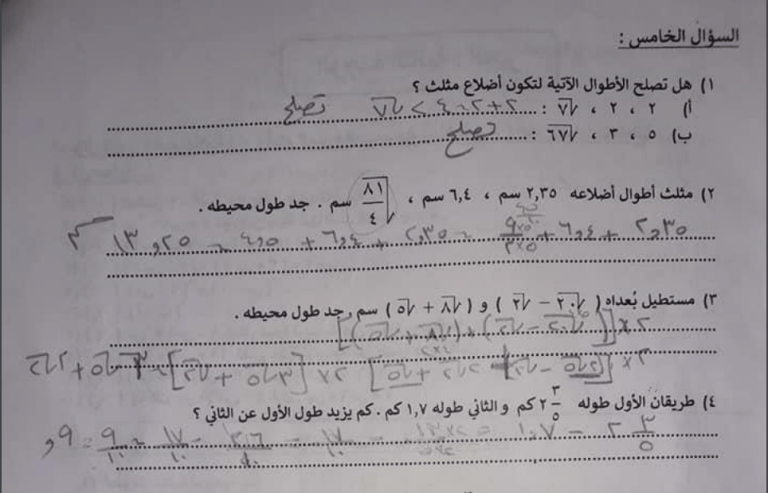 السؤال الخامس :
١) هل تصلح الأطوال الآتية لتكون أضلاع مثلث ؟
أ) ٢ ، ٢ ، √٧ : ٢+٢=٤ > √٧ تصلح
ب) ٥ ، ٣ ، √٦٧ : تصلح
٢) مثلث أطوال أضلاعه ٢,٣٥ سم ، ٦,٤ سم ، √(٨١/٤) سم . جد طول محيطه .
٢,٣٥ + ٦,٤ + ٩/٢ = ٢,٣٥ + ٦,٤ + ٤,٥ = ١٣,٢٥
٣) مستطيل بُعداه ( √٢٠ − √٢ ) و ( √٨ + √٥ ) سم , جد طول محيطه .
٢×[(√٢٠ − √٢) + (√٨ + √٥)]
٢×[٢√٥ − √٢ + ٢√٢ + √٥] ٢×[٣√٥ + √٢] = ٦√٥ + ٢√٢
٤) طريقان الأول طوله ٢ ٣/٥ كم و الثاني طوله ١,٧ كم . كم يزيد طول الأول عن الثاني ؟
٢ ٣/٥ − ١,٧ = − ١٧/١٠ = ٢٦/١٠ − ١٧/١٠ = ٩/١٠ = ,٩